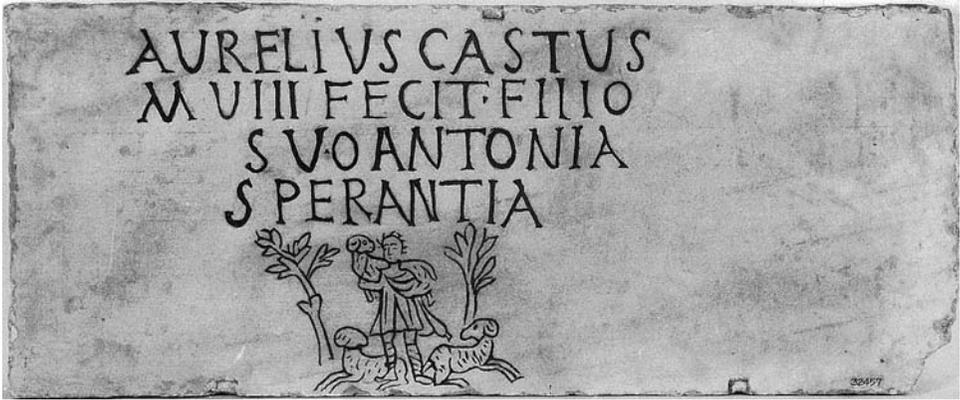 AURELIUS CASTUS
M VIIII FECIT·FILIO
SUO ANTONIA
SPERANTIA
32457